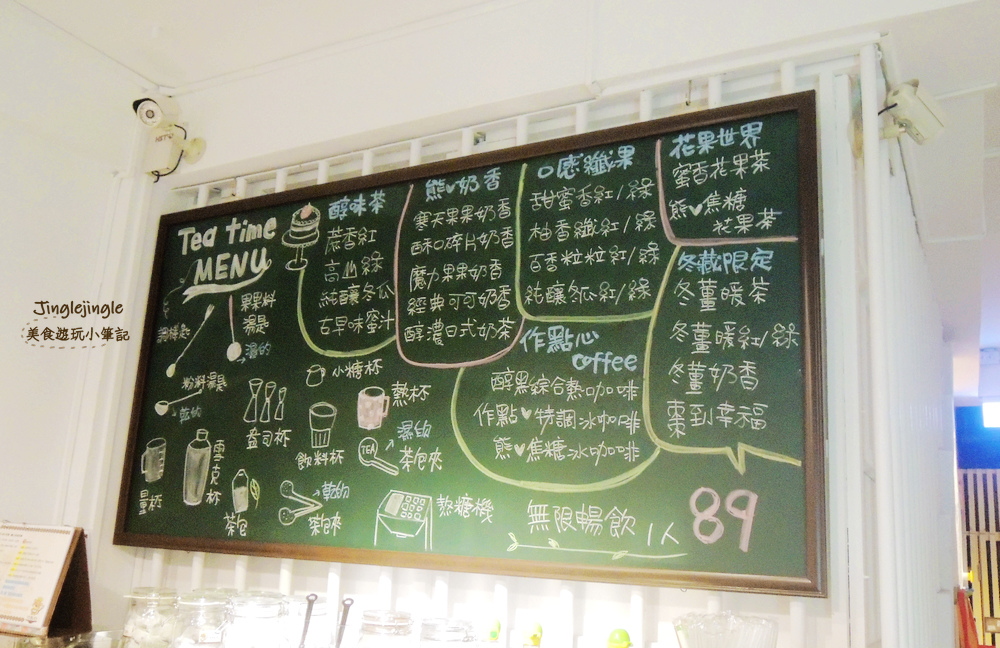 Tea time
MENU
醇味茶
蔗香紅
高山綠
純釀冬瓜
古早味蜜汁
熊♥奶香
寒天果果奶香
酥口碎片奶香
魔力果果奶香
經典可可奶香
醇濃日式奶茶
口感纖果
甜蜜香紅/綠
柚香纖紅/綠
百香粒粒紅/綠
純釀冬瓜紅/綠
花果世界
蜜香花果茶
熊♥焦糖
花果茶
冬藏限定
冬薑暖茶
冬薑暖紅/綠
冬薑奶香
棗到幸福
作點心
coffee
醇黑綜合熱咖啡
作點♥特調冰咖啡
熊♥焦糖冰咖啡
果果料
湯匙
濕的
粉料湯匙
乾的
盎司杯
小糖杯
熱杯
飲料杯
濕的
茶包夾
TEA
量杯
雪克杯
茶包
乾的
茶包夾
熱糖機
無限暢飲 1人 89
Jinglejingle
美食遊玩小筆記